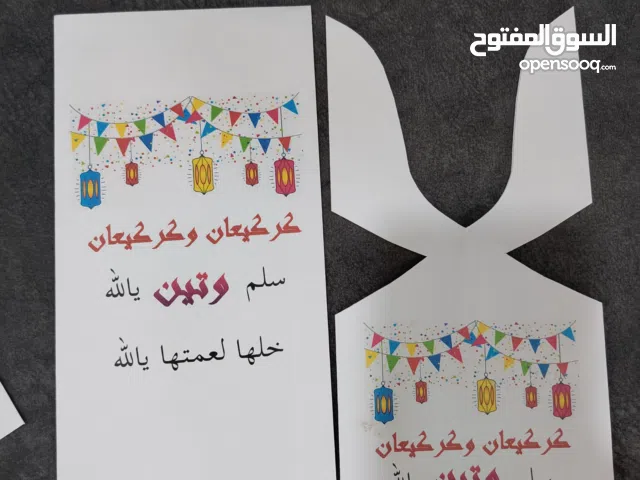 السوق المفتوح
opensooq.com
كركيعان وكركيعان
سلم وتين يالله
خلها لعمتها يالله
كركيعان وكركيعان
سلم وتين يالله